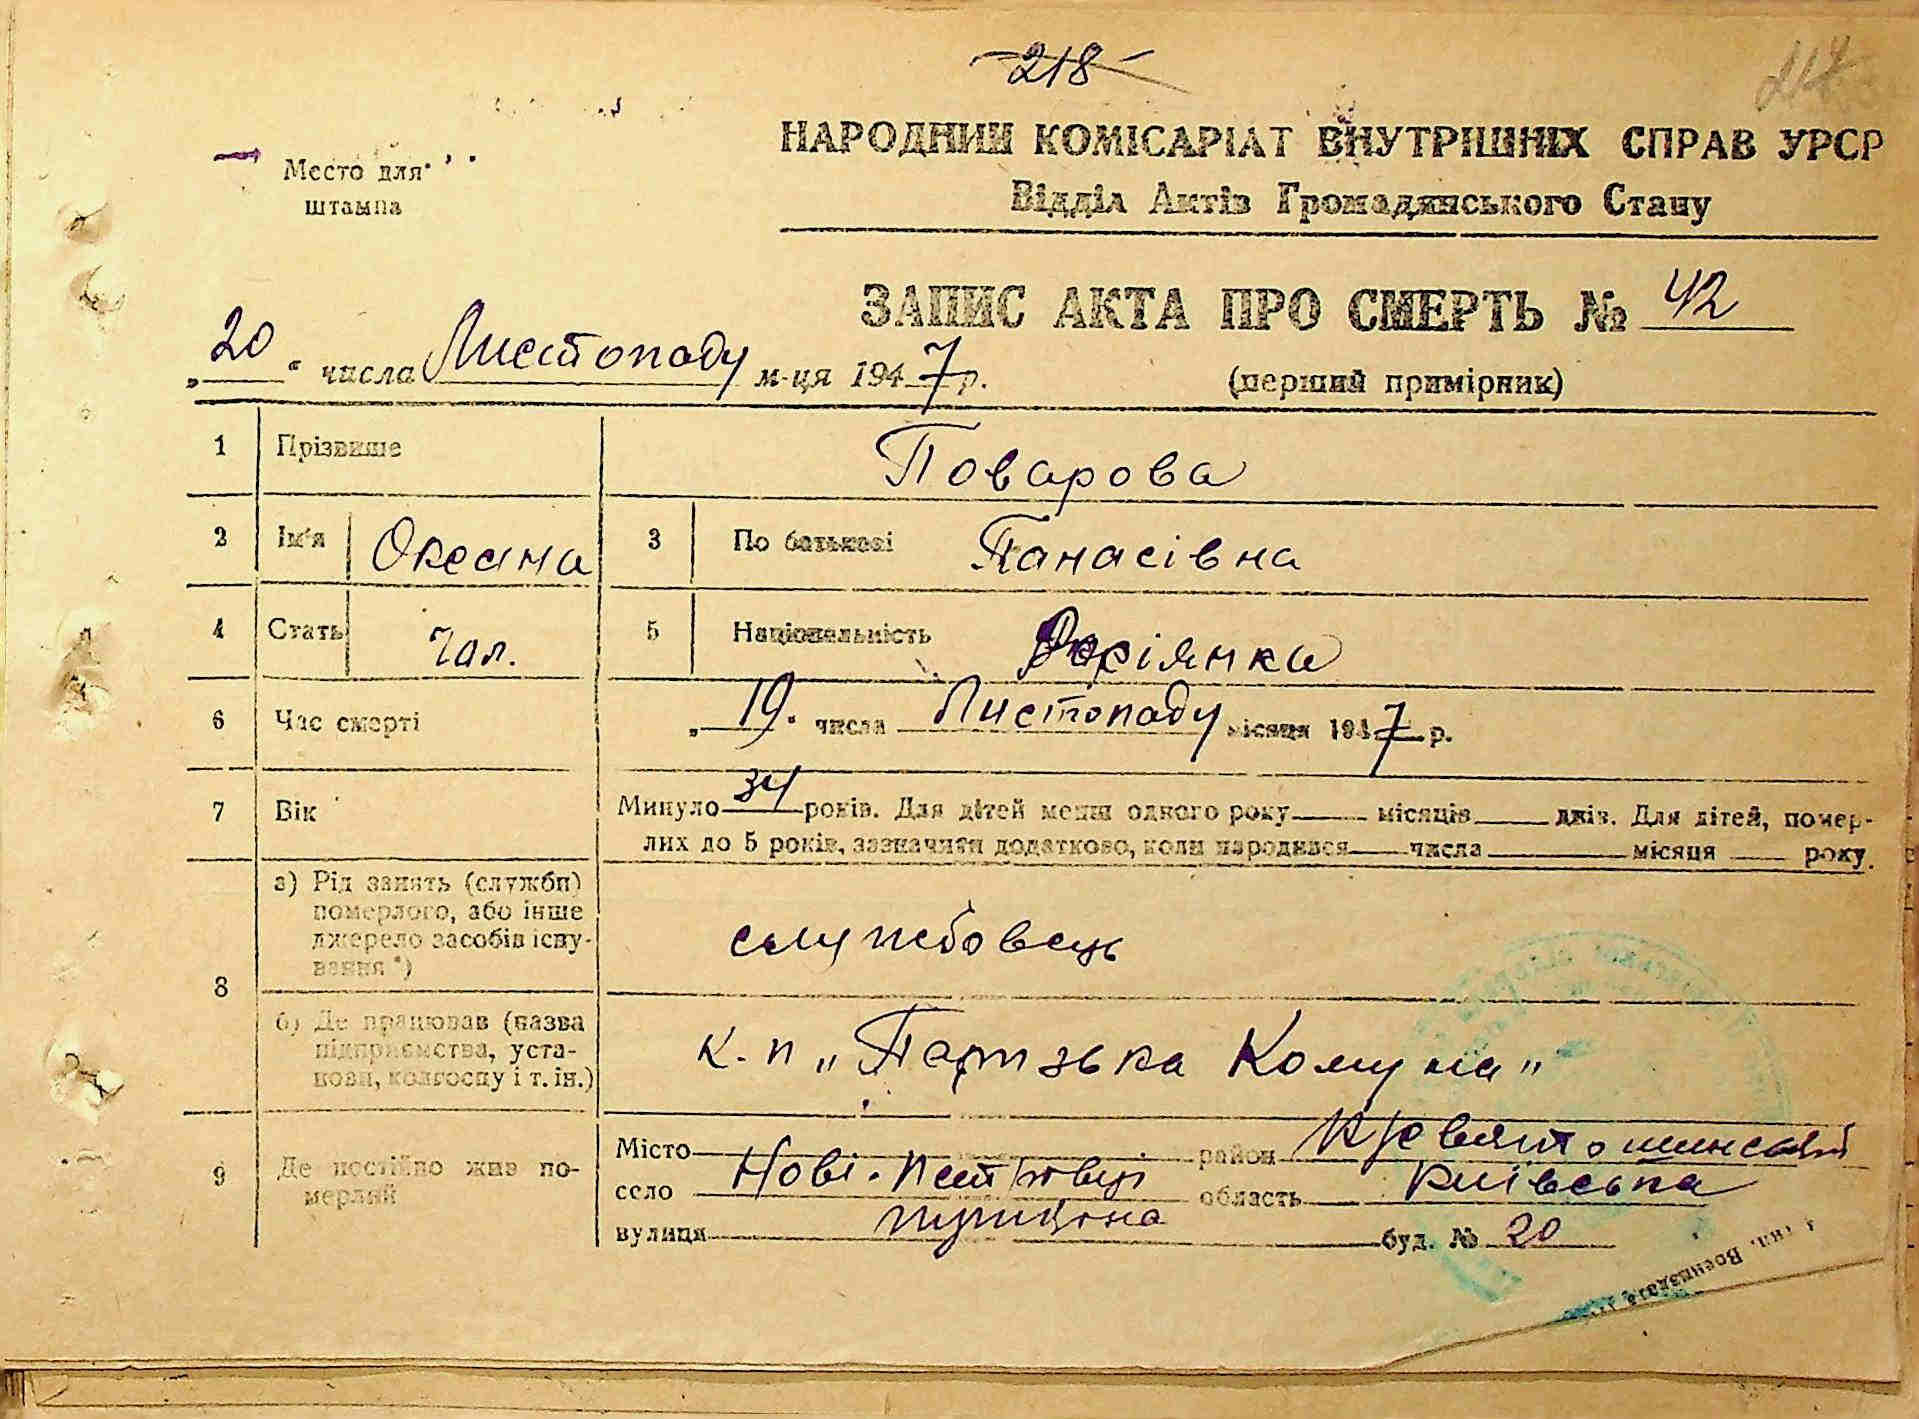 218
217
Место для
штампа
НАРОДНИЙ КОМІСАРІАТ ВНУТРІШНІХ СПРАВ УРСР
Відділ Актів Громадянського Стану
ЗАПИС АКТА ПРО СМЕРТЬ № 42
„20“ числа Листопаду м-ця 1947 р. (перший примірник)
1 Прізвище Поварова
2 Ім'я Оксана 3 По батькові Панасівна
4 Стать жін. 5 Національність Росіянка
6 Час смерті „19. числа Листопаду місяця 1947 р.
7 Вік Минуло 34 років. Для дітей менш одного року місяців днів. Для дітей, помер-
лих до 5 років, зазначити додатково, коли народився числа місяця року.
8 а) Рід занять (служби)
померлого, або інше
джерело засобів існу-
вання *) службовець
б) Де працював (назва
підприємства, уста-
нови, колгоспу і т. ін.) к-п „Паризька Комуна"
9 Де постійно жив по-
мерлий
Місто район Києвсвятошинський
село Нові-Петрівці область Київська
вулиця буд. № 20
Воениздата